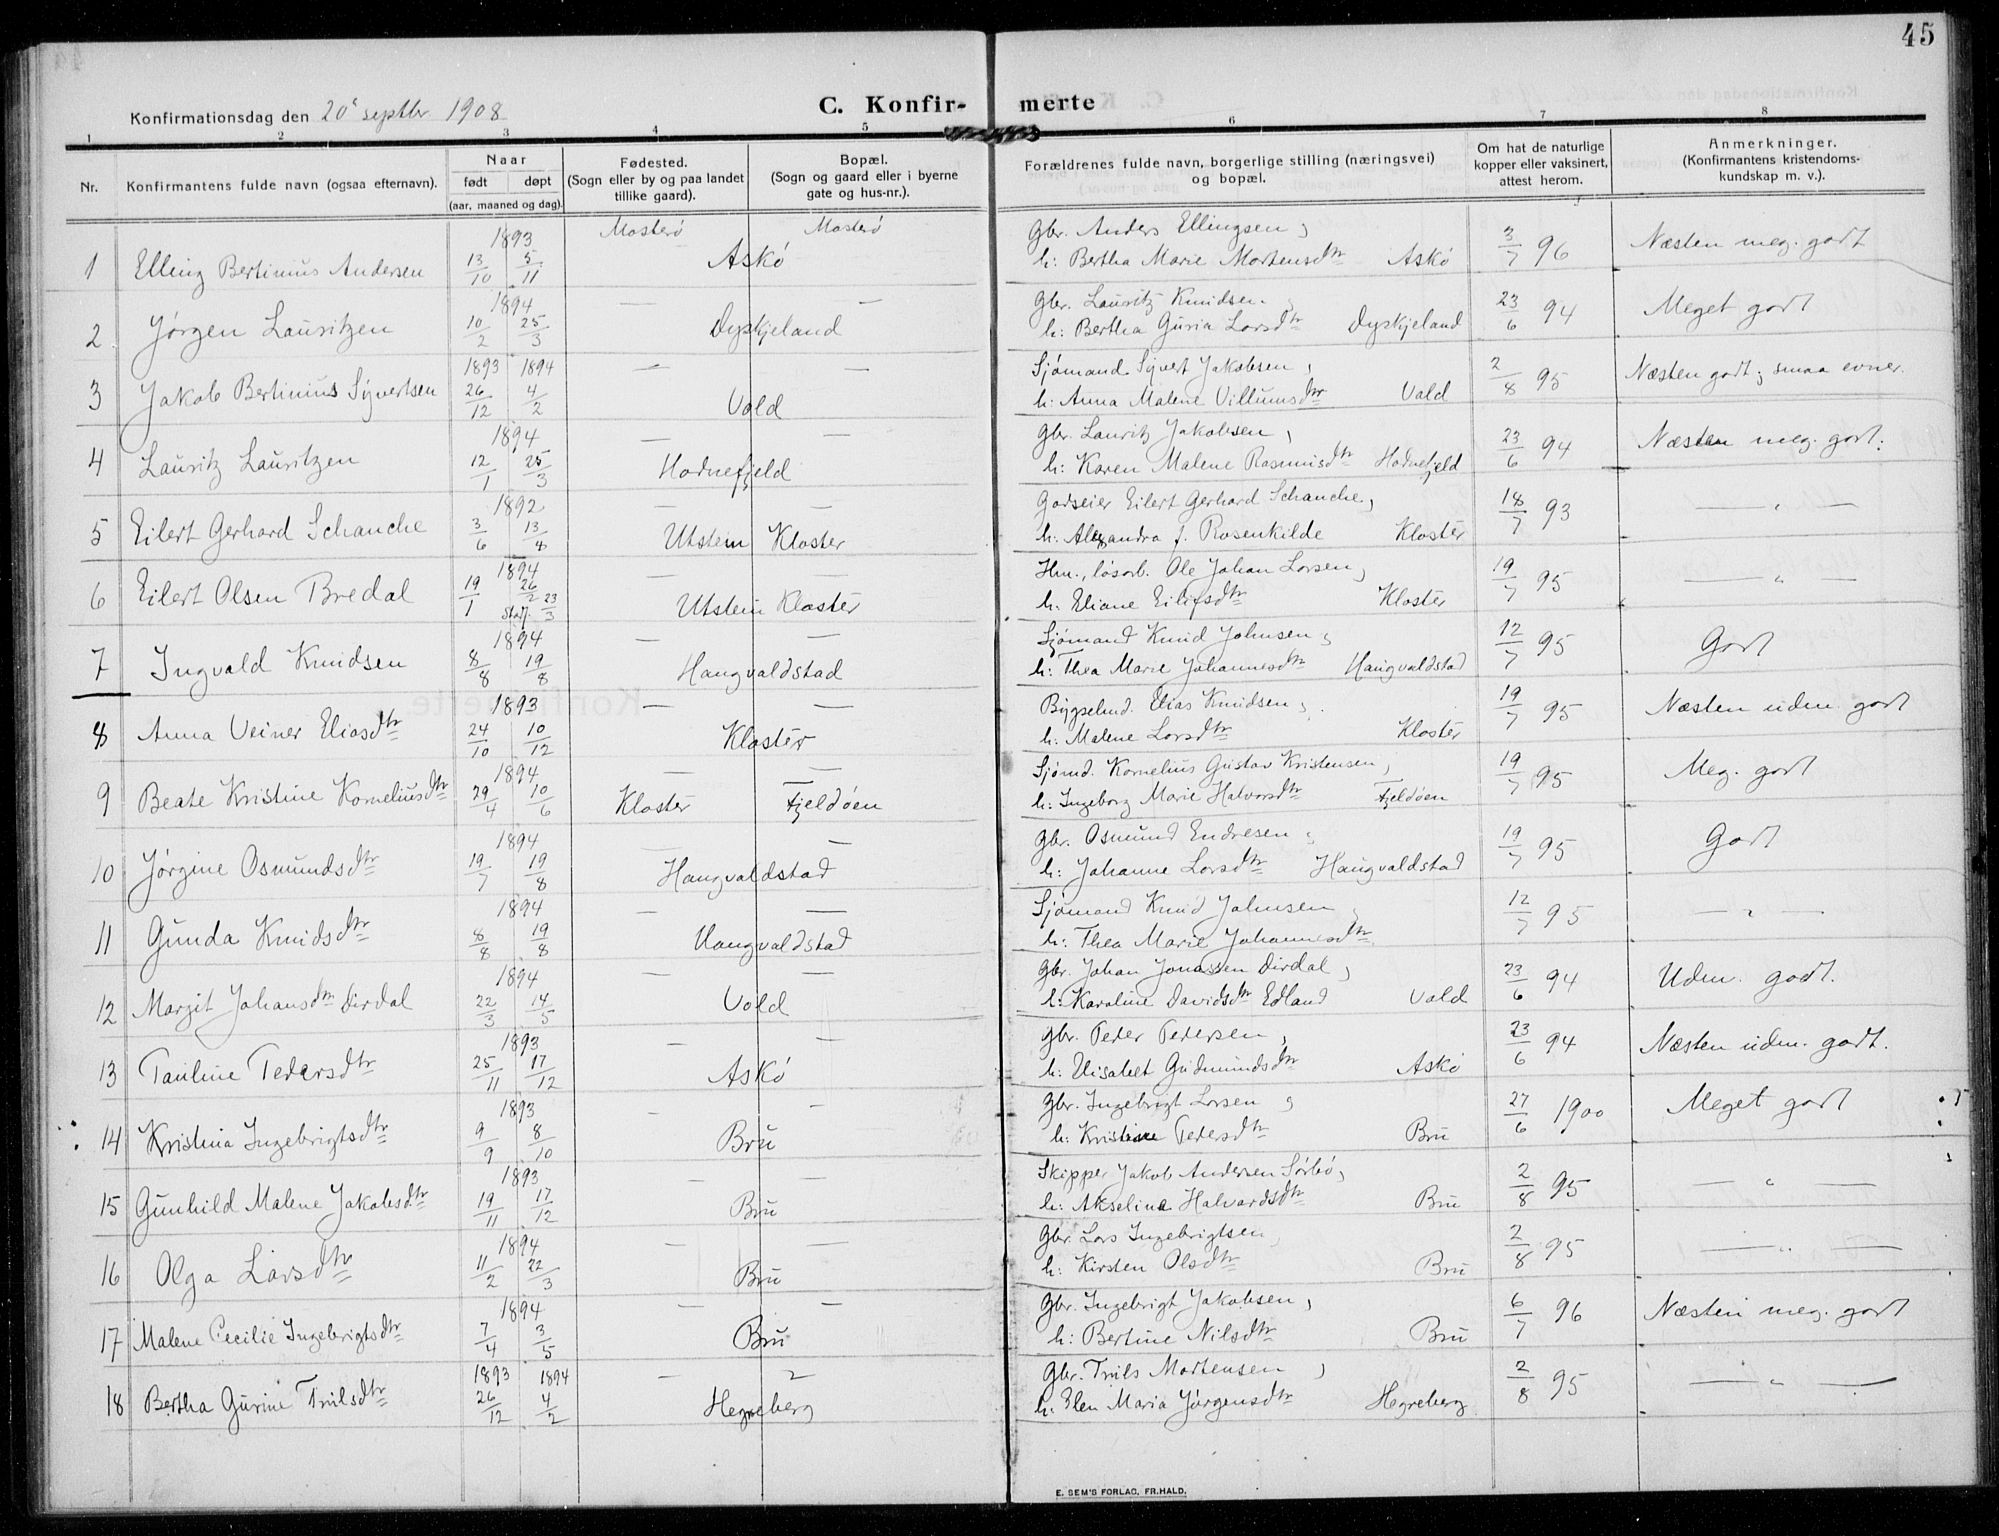 45
C. Konfir- merte
Konfirmationsdag den 20de septbr 1908
1 2 3 4 5 6 7 8
Nr. Konfirmantens fulde navn (ogsaa efternavn). Naar født døpt (aar, maaned og dag). Fødested. (Sogn eller by og paa landet tillike gaard). Bopæl. (Sogn og gaard eller i byerne gate og hus-nr.). Forældrenes fulde navn, borgerlige stilling (næringsvei) og bopæl. Om hat de naturlige kopper eller vaksinert, attest herom. Anmerkninger. (Konfirmantens kristendoms- kundskap m. v.).
1893 Mosterø Mosterø Gbr. Anders Ellingsen,
1 Elling Bertinius Andersen 13/10 5/11 Askø h: Bertha Marie Mortensdtr Askø 3/7 96 Næsten meg. godt
1894 — — Gbr. Lauritz Knudsen,
2 Jørgen Lauritzen 10/2 25/3 Dyskjeland h: Bertha Guria Larsdtr Dyskjeland 23/6 94 Meget godt
1893 1894 — — Sjømand Sivert Jakobsen,
3 Jakob Bertinius Sivertsen 26/12 4/2 Vold h: Anna Malene Villumsdtr Vold 2/8 95 Næsten godt; smaa evner.
1894 — — Gbr. Lauritz Jakobsen,
4 Lauritz Lauritzen 12/1 25/3 Hodnefjeld h: Karen Malene Rasmusdtr Hodnefjeld 23/6 94 Næsten meg. godt.
1892 — — Godseier Eilert Gerhard Schanche,
5 Eilert Gerhard Schanche 3/6 13/8 Utstein Kloster h: Alexandra f. Rosenkilde Kloster 18/7 93 — " —
1894 — — Hm., løsarb. Ole Johan Larsen,
6 Eilert Olsen Bredal 19/1 26/2 Stad. 23/3 Utstein Kloster h: Eliane Eilifsdtr Kloster 19/7 95 — " —
1894 — — Sjømand Knud Johnsen,
7 Ingvald Knudsen 8/8 19/8 Haugvaldstad h: Thea Marie Johannesdtr Haugvaldstad 12/7 95 Godt
1893 — — Bygselmd. Elias Knudsen,
8 Anna Veiner Eliasdtr 24/10 10/12 Kloster h: Malene Larsdtr Kloster 19/7 95 Næsten udm. godt
1894 — — Sjømd. Kornelius Gustav Kristensen,
9 Beate Kristine Korneliusdtr 29/4 10/6 Kloster Fjeldøen h: Ingeborg Marie Halvorsdtr Fjeldøen 19/7 95 Meg. godt
1894 — — Gbr. Osmund Endresen,
10 Jørgine Osmundsdtr 19/7 19/8 Haugvaldstad h: Johanne Larsdtr Haugvaldstad 19/7 95 Godt
1894 — — Sjømand Knud Johnsen,
11 Gunda Knudsdtr 8/8 19/8 Haugvaldstad h: Thea Marie Johannesdtr 12/7 95 — " —
1894 — — Gbr. Johan Jonassen Dirdal,
12 Margit Johansdtr Dirdal 22/3 14/5 Vold h: Karoline Davidsdtr Edland Vold 23/6 94 Udm. godt.
1893 — — Gbr. Peder Pedersen,
13 Pauline Pedersdtr 25/11 17/12 Askø h: Elisabet Gudmundsdtr Askø 23/6 94 Næsten udm. godt.
1893 — — Gbr. Ingebrigt Larsen,
14 Kristina Ingebrigtsdtr 9/9 8/10 Bru h: Kristine Pedersdtr Bru 27/6 1900 Meget godt
1893 — — Skipper Jakob Andersen Sørbø,
15 Gunhild Malene Jakobsdtr 19/11 17/12 Bru h: Akseline Halvardsdtr Bru 2/8 95 — " —
1894 — — Gbr. Lars Ingebrigtsen,
16 Olga Larsdtr 11/2 22/3 Bru h: Kirsten Olsdtr Bru 2/8 95 — " —
1894 — — Gbr. Ingebrigt Jakobsen,
17 Malene Cecilie Ingebrigtsdtr 7/4 3/5 Bru h: Bertine Nilsdtr Bru 6/7 96 Næsten meg. godt
1893 1894 — — Gbr. Truls Mortensen,
18 Bertha Gurine Trulsdtr 26/12 4/2 Hegreberg h: Elen Maria Jørgensdtr Hegreberg 2/8 95 — " —
E. SEM'S FORLAG, FR.HALD.